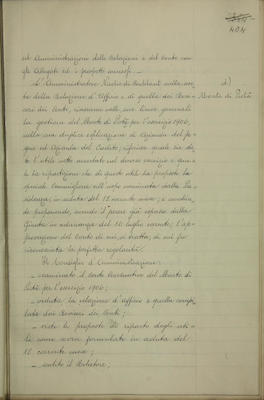 404
di Amministrazione delle Relazioni e del Conto con
gli Allegati ed i prospetti annessi.
L'Amministratore
della Relazione d'Ufficio e di quella dei Revi-
sori dei Conti, riassume nelle sue linee generali
d)
Monte di Pietà
la gestione del Monte di Pietà per l'esercizio 1906,
nella sua duplice esplicazione di Azienda del Pe-
gno ed Azienda del Credito; riferisce quale sia sta-
to l'utile netto accertato nel decorso esercizio e qua-
le la ripartizione che di questo utile ha proposto la
speciale Commissione all'uopo nominata dalla Pre-
sidenza in seduta del 12 corrente mese; e conclu-
de proponendo, secondo il parere già espresso dalla
Giunta in adunanza del 10 luglio corrente, l'ap-
provazione del Conto di cui si tratta, di cui fu
riconosciuta la perfetta regolarità.
Il Consiglio d'Amministrazione:
- esaminato il Conto Consuntivo del Monte di
Pietà per l'esercizio 1906;
- veduta la relazione d'ufficio e quella compi-
lata dai Revisori dei Conti;
- viste le proposte di riparto degli uti-
li come sopra formulate in seduta del
12 corrente mese;
- sentito il Relatore;